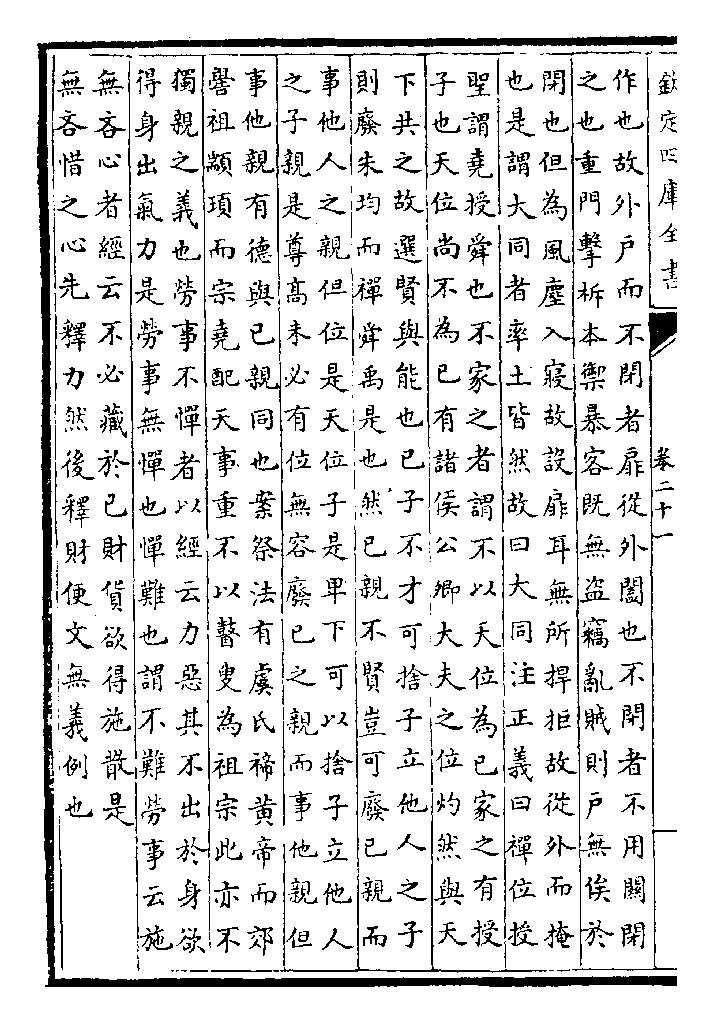 欽定四庫全書
卷二十一
作也故外戸而不閉者扉從外闔也不閉者不用關閉
之也重門擊柝本禦暴客既無盜竊亂賊則戸無俟於
閉也但為風塵入寢故設扉耳無所捍拒故從外而掩
也是謂大同者率土皆然故曰大同注正義曰禪位授
聖謂堯授舜也不家之者謂不以天位為已家之有授
子也天位尚不為已有諸侯公卿大夫之位灼然與天
下共之故選賢與能也已子不才可捨子立他人之子
則廢朱均而禪舜禹是也然已親不賢豈可廢已親而
事他人之親但位是天位子是卑下可以捨子立他人
之子親是尊髙未必有位無容廢已之親而事他親但
事他親有德與已親同也案祭法有虞氏禘黃帝而郊
嚳祖顓頊而宗堯配天事重不以瞽叟為祖宗此亦不
獨親之義也勞事不憚者以經云力惡其不出於身欲
得身出氣力是勞事無憚也憚難也謂不難勞事云施
無吝心者經云不必藏於已財貨欲得施散是
無吝惜之心先釋力然後釋財便文無義例也